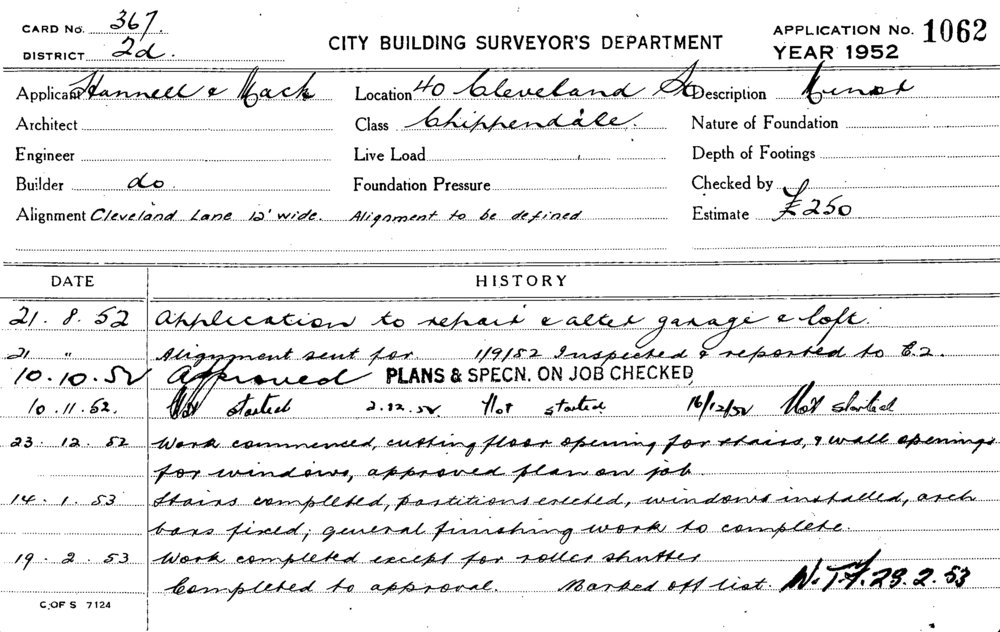 CARD No. 367.
DISTRICT 2d.
CITY BUILDING SURVEYOR'S DEPARTMENT
APPLICATION No. 1062
YEAR 1952
Applicant Hannell & Mack Location 40 Cleveland St Description Minor
Architect Class Chippendale. Nature of Foundation
Engineer Live Load Depth of Footings
Builder do Foundation Pressure Checked by
Alignment Cleveland Lane 12' wide. Alignment to be defined Estimate £250
DATE HISTORY
21. 8. 52 Application to repair & alter garage & loft.
21 " Alignment sent for 1/9/52 Inspected & reported to E.2.
10.10.52 Approved PLANS & SPECN. ON JOB CHECKED
10.11.52. Not started 2.12.52 Not started 16/12/52 Not started
23. 12. 52 Work commenced, cutting floor opening for stairs, & wall openings
for windows, approved plan on job.
14. 1. 53 Stairs completed, partitions erected, windows installed, arch
bars fixed; general finishing work to complete.
19. 2. 53 Work completed except for roller shutter
Completed to approval. Marked off list. N.T.F. 23.2.53
C. OF S 7124